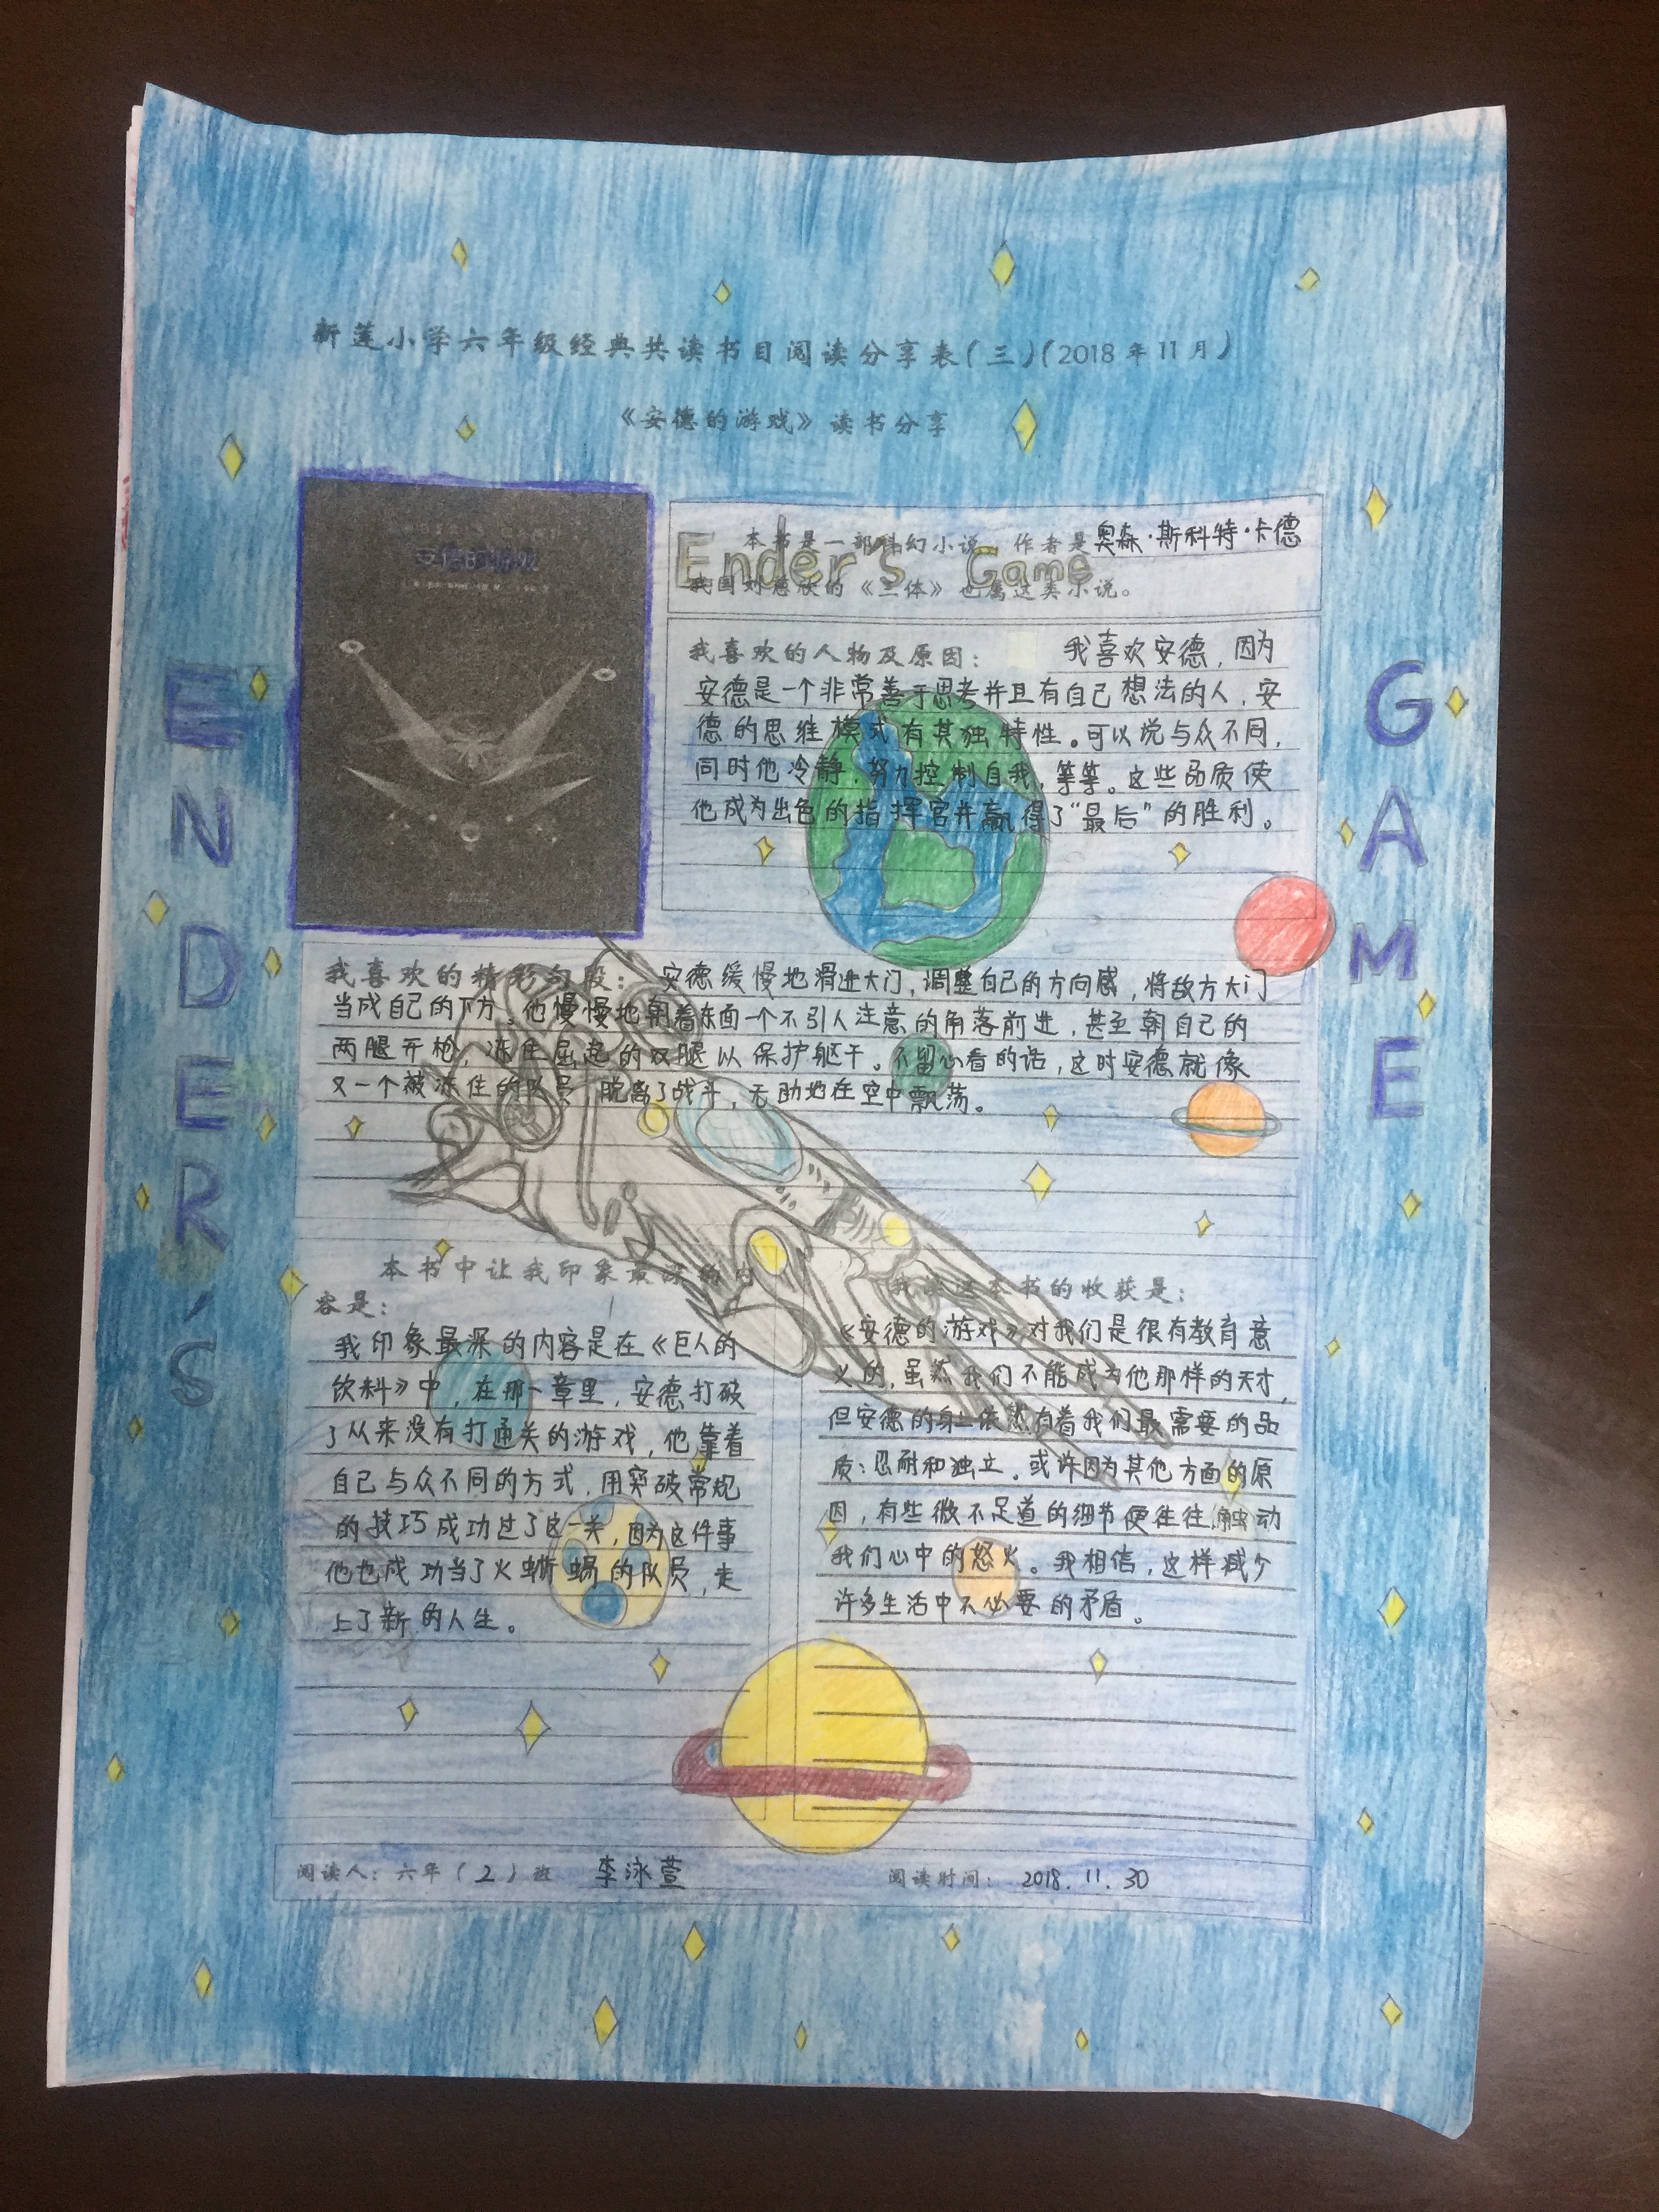 新莲小学六年级经典共读书目阅读分享表(三)(2018年11月)
《安德的游戏》读书分享
安德的游戏
Ender's Game
本书是一部科幻小说 作者是奥森·斯科特·卡德
我国刘慈欣的《三体》也属这类小说。
我喜欢的人物及原因: 我喜欢安德,因为
安德是一个非常善于思考并且有自己想法的人,安
德的思维模式有其独特性。可以说与众不同,
同时他冷静,努力控制自我,等等。这些品质使
他成为出色的指挥官并赢得了“最后”的胜利。
我喜欢的精彩句段: 安德缓慢地滑进大门,调整自己的方向感,将敌方大门
当成自己的下方。他慢慢地朝着东面一个不引人注意的角落前进,甚至朝自己的
两腿开枪,冻住屈起的双腿以保护躯干。不留心看的话,这时安德就像
又一个被冻住的队员,脱离了战斗,无助地在空中飘荡。
本书中让我印象最深的内
容是:
我印象最深的内容是在《巨人的
饮料》中,在那一章里,安德打破
了从来没有打通关的游戏,他靠着
自己与众不同的方式,用突破常规
的技巧成功过了这一关,因为这件事
他也成功当了火蜥蜴的队员,走
上了新的人生。
我读这本书的收获是:
《安德的游戏》对我们是很有教育意
义的,虽然我们不能成为他那样的天才,
但安德的身上依然有着我们最需要的品
质:忍耐和独立。或许因为其他方面的原
因,有些微不足道的细节便往往触动
我们心中的怒火。我相信,这样减少
许多生活中不必要的矛盾。
阅读人:六年(2)班 李泳萱 阅读时间: 2018.11.30
ENDER'S
GAME